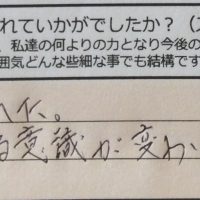 れていかがでしたか？（
、私達の何よりの力となり今後の
囲気どんな些細な事でも結構です
。
意識が変わ